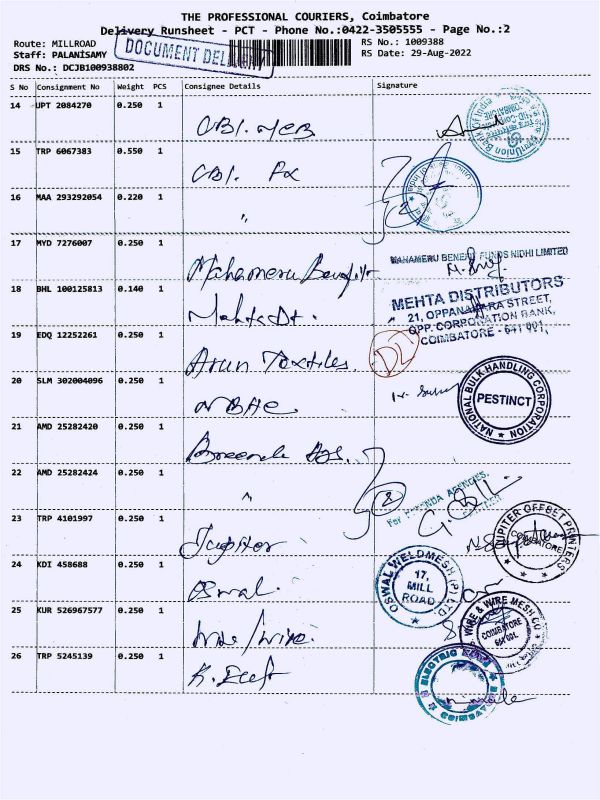 THE PROFESSIONAL COURIERS, Coimbatore
Delivery Runsheet - PCT - Phone No.:0422-3505555 - Page No.:2
Route: MILLROAD
DOCUMENT
RS No.: 1009388
Staff: PALANISAMY
RS Date: 29-Aug-2022
DRS No.: DCJB100938802
S No Consignment No Weight PCS Consignee Details Signature
14 UPT 2084270 0.250 1
15 TRP 6067383 0.550 1
CBI.
16 MAA 293292054 0.220 1
"
17 MYD 7276007 0.250 1
Mahameru Benefit
MAHAMERU BENEFIT FUNDS NIDHI LIMITED
18 BHL 100125813 0.140 1
Mehta Dt.
MEHTA DISTRIBUTORS
21, OPPANAKARA STREET,
OPP. CORPORATION BANK,
COIMBATORE - 641 001.
19 EDQ 12252261 0.250 1
Arun Textiles.
D21
20 SLM 302004096 0.250 1
NBHC
NATIONAL BULK HANDLING CORPORATION
PESTINCT
21 AMD 25282420 0.250 1
22 AMD 25282424 0.250 1
"
2
For AGENCIES.
23 TRP 4101997 0.250 1
Jupiter
JUPITER OFFSET PRINTERS
COIMBATORE
24 KDI 458688 0.250 1
Oswal
OSWAL WELDMESH (P) LTD
17,
MILL
ROAD
25 KUR 526967577 0.250 1
Wire/wire.
WIRE & WIRE MESH CO
COIMBATORE
641 001.
26 TRP 5245139 0.250 1
ELECTRIC
COIMBATORE